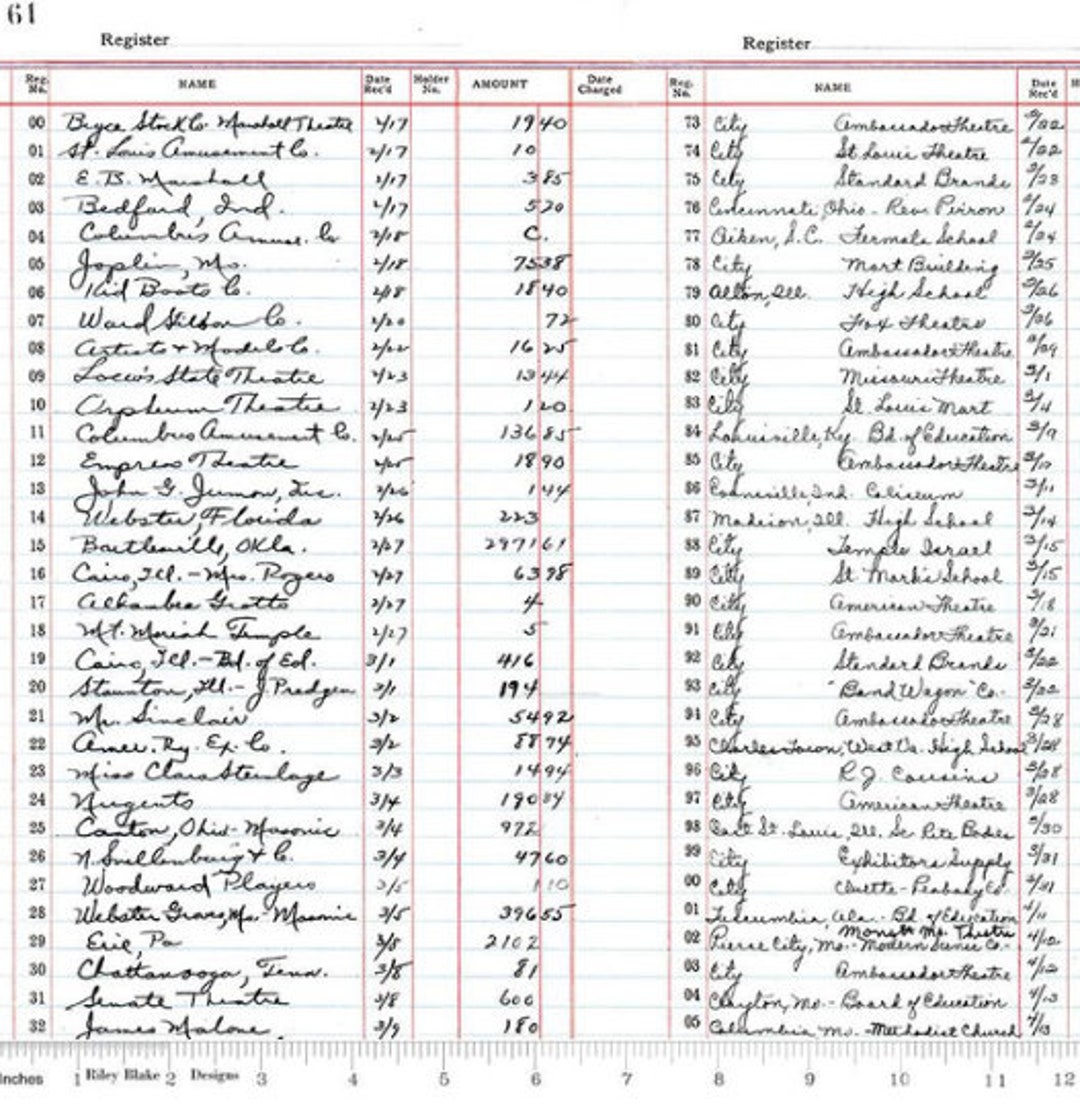 61
Register
Reg. No. NAME Date Rec'd Holder No. AMOUNT Date Charged
00 Bryce Stock Co. Marshall Theatre 2/17 19 40
01 St. Louis Amusement Co. 2/17 10
02 E. B. Marshall 2/17 3 85
03 Bedford, Ind. 2/17 5 20
04 Columbus Amuse. Co 2/18 C.
05 Joplin, Mo. 2/18 75 38
06 Kid Boots Co. 2/18 18 40
07 Ward Co. 2/20 72
08 Artists & Models Co. 2/22 16 25
09 Loew's State Theatre 2/23 13 44
10 Orpheum Theatre 2/23 1 20
11 Columbus Amusement Co. 2/25 136 85
12 Empress Theatre 2/25 18 90
13 John G. Inc. 2/26 1 44
14 Webster, Florida 2/26 223
15 Bartlesville, Okla. 2/27 2971 61
16 Cairo, Ill. - Mrs. Rogers 2/27 63 98
17 Alhambra Grotto 2/27 4
18 Mt. Moriah Temple 2/27 5
19 Cairo, Ill. - Bd. of Ed. 3/1 416
20 Staunton, Ill. - J. Pradgen 3/1 194
21 Mr. Sinclair 3/2 54 92
22 Amer. Ry. Ex. Co. 3/2 88 74
23 Miss Clara Steinlage 3/3 14 94
24 Nugents 3/4 190 84
25 Canton, Ohio - Masonic 3/4 972
26 N. Snellenburg & Co. 3/4 47 60
27 Woodward Players 3/5 1 10
28 Webster Groves, Mo. - Masonic 3/5 396 55
29 Erie, Pa 3/8 2102
30 Chattanooga, Tenn. 3/8 81
31 Senate Theatre 3/8 600
32 James Malone 3/9 180
Register
Reg. No. NAME Date Rec'd H
73 City Ambassador Theatre 2/22
74 City St. Louis Theatre 2/22
75 City Standard Brands 2/23
76 Cincinnati, Ohio - Rev. Peiron 2/24
77 Aiken, S.C. Fermata School 2/24
78 City Mart Building 2/25
79 Alton, Ill. High School 2/26
80 City Fox Theatre 2/26
81 City Ambassador Theatre 2/29
82 City Missouri Theatre 3/1
83 City St. Louis Mart 3/4
84 Louisville, Ky. Bd. of Education 3/9
85 City Ambassador Theatre 3/10
86 Evansville, Ind. Coliseum 3/11
87 Madison, Ill. High School 3/14
88 City Temple Israel 3/15
89 City St Mark's School 3/15
90 City American Theatre 3/18
91 City Ambassador Theatre 3/21
92 City Standard Brands 3/22
93 City "Band Wagon" Co. 3/22
94 City Ambassador Theatre 3/28
95 Charles Town, West Va. High School 3/28
96 City R. J. Cousins 3/28
97 City American Theatre 3/28
98 East St. Louis, Ill. Sc. Rite Bodies 3/30
99 City Exhibitors Supply 3/31
00 City Cluette-Peabody Co. 3/31
01 Tuscumbia, Ala. - Bd. of Education 4/11
Monett Mo. Theatre
02 Pierce City, Mo. - Modern Scenic Co. 4/12
03 City Ambassador Theatre 4/12
04 Clayton, Mo. - Board of Education 4/13
05 Columbia Mo. - Methodist Church 4/13
Inches 1 Riley Blake 2 Designs 3 4 5 6 7 8 9 10 11 12